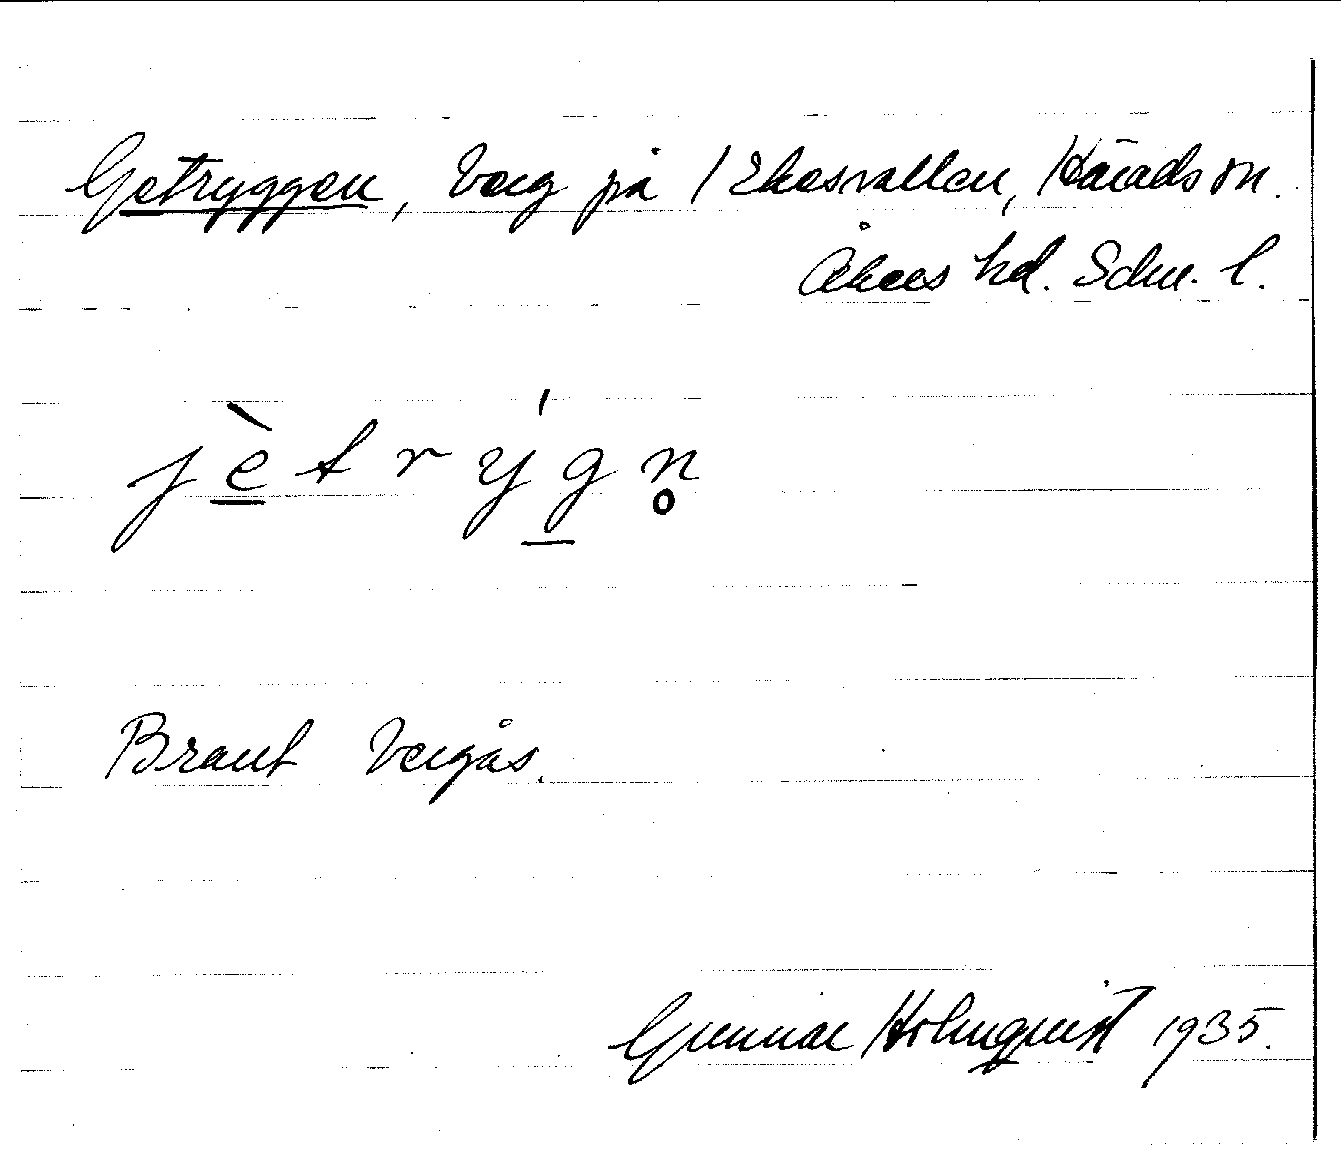 Getryggen, berg på /Ekesvallen, Härads sn.
Åkers hd. Södm. l.
jètrýgn̥
Brant bergås.
Gunnar Holmquist 1935.